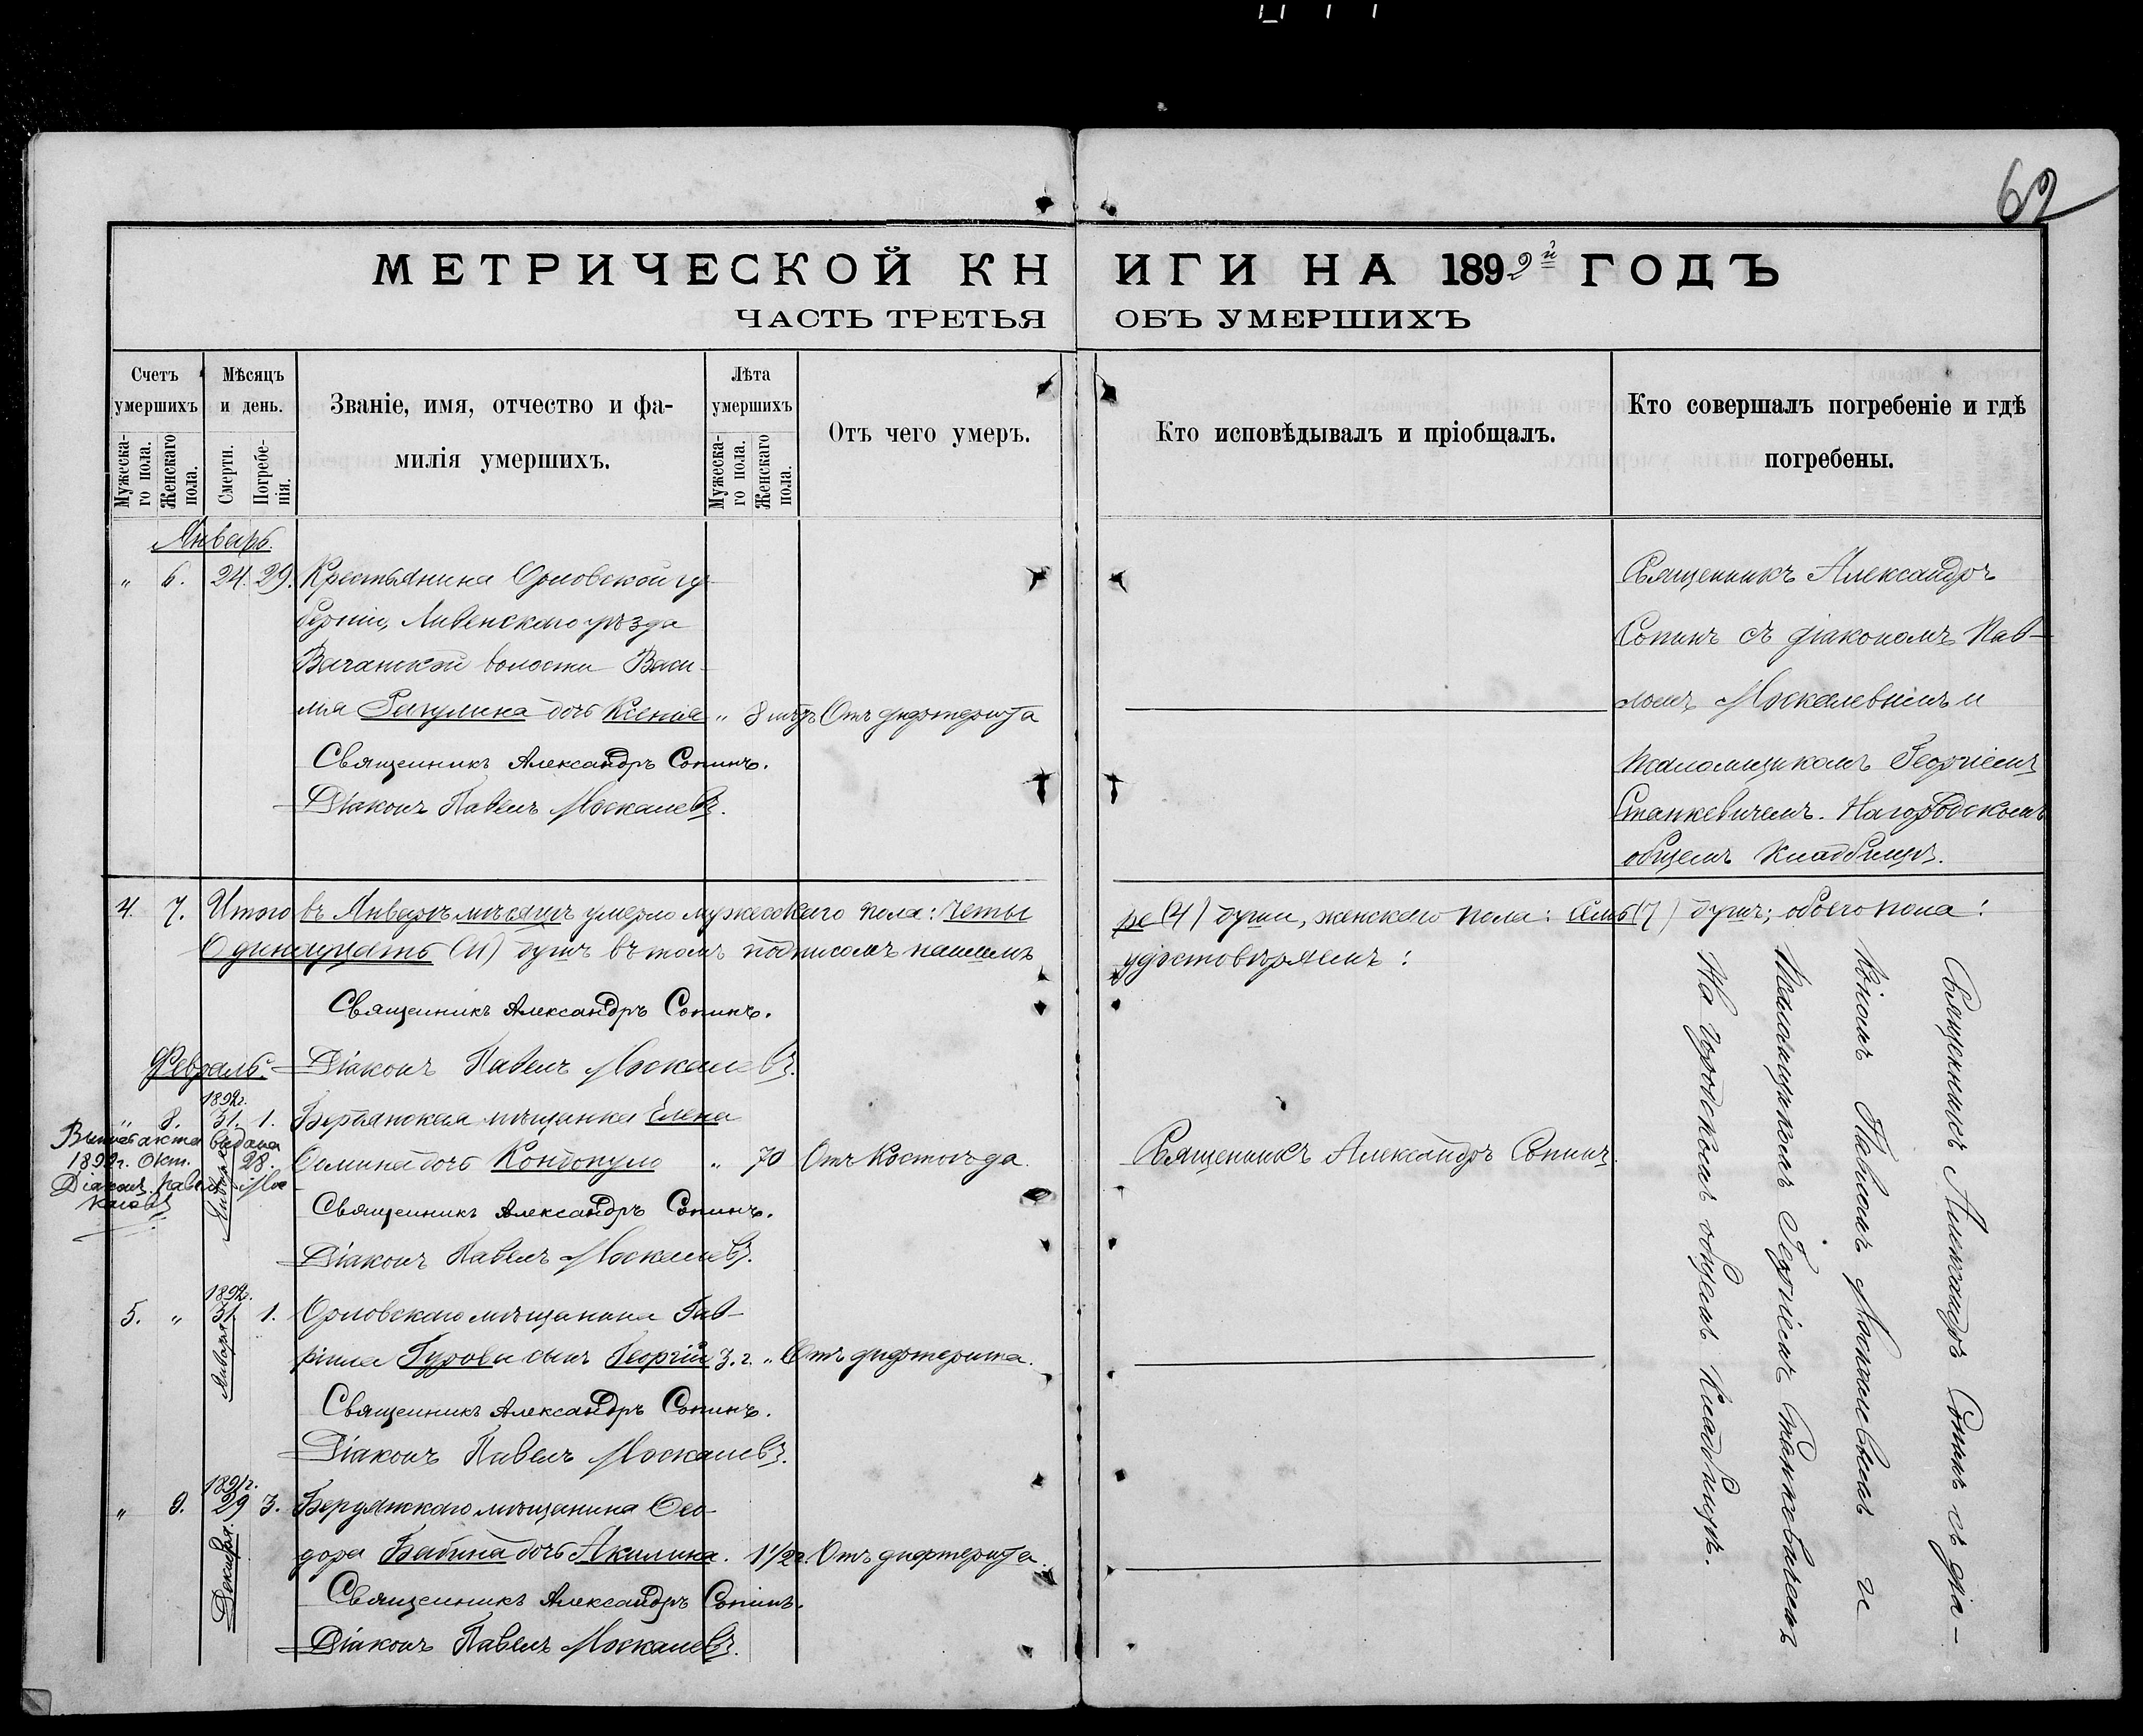 62
МЕТРИЧЕСКОЙ КНИГИ НА 1892й ГОДЪ
ЧАСТЬ ТРЕТЬЯ ОБЪ УМЕРШИХЪ
Счетъ умершихъ
Мужескаго пола.
Женскаго пола.
Мѣсяцъ и день.
Смерти.
Погребенія.
Званіе, имя, отчество и фамилія умершихъ.
Лѣта умершихъ
Мужескаго пола.
Женскаго пола.
Отъ чего умеръ.
Кто исповѣдывалъ и пріобщалъ.
Кто совершалъ погребеніе и гдѣ погребены.
Январь.
„ 6. 24. 29. Крестьянина Орловской гу-
берніи, Ливенскаго уѣзда
волости Васи-
лія дочь Ксенія „ 8 Отъ дифтерита
Священникъ Александръ Сопинъ.
Діаконъ Павелъ Москалевъ.
Священникъ Александръ
Сопинъ съ діакономъ Пав-
ломъ Москалевымъ и
псаломщикомъ Георгіемъ
Станкевичемъ. На городскомъ
общемъ кладбищѣ.
4. 7. Итого въ Январѣ мѣсяцѣ умерло мужескаго пола: четы
ре (4) души, женскаго пола: семь (7) душъ; обоего пола:
Одинадцать (11) душъ въ томъ подписомъ нашимъ
удостовѣряемъ:
Священникъ Александръ Сопинъ.
Діаконъ Павелъ Москалевъ.
Февраль.
1892г.
„ 8. 31. 1. Бердянская мѣщанка Елена
Января
дочь Кондопуло „ 70 Отъ
Священникъ Александръ Сопинъ.
Священникъ Александръ Сопинъ.
Діаконъ Павелъ Москалевъ.
акта выдана
1892г. Окт. 28.
Діаконъ Павелъ Мос
калевъ
1892.
5. „ 31 1. Орловскаго мѣщанина Гав-
Января
ріила Гурова сынъ Георгій 3. г. „ Отъ дифтерита.
Священникъ Александръ Сопинъ.
Діаконъ Павелъ Москалевъ.
1891г.
„ 9. 29 3. Бердянскаго мѣщанина Ѳео-
Декабря.
дора Бабина дочь Акилина. 1½ г. Отъ дифтерита.
Священникъ Александръ Сопинъ.
Діаконъ Павелъ Москалевъ.
Священникъ Александръ Сопинъ съ діа-
кономъ Павломъ Москалевымъ и
псаломщикомъ Георгіемъ Станкевичемъ
На городскомъ общемъ кладбищѣ.